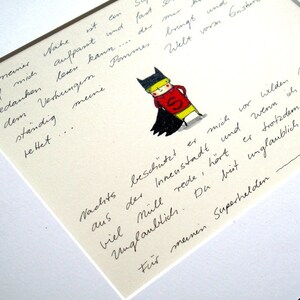 meiner Nähe ist ein Su
mich aufpasst und fast
edanken lesen kann.... der mir
dem Verhungern Pommes bringt
ständig meine Welt vorm Einsturz
rettet...
S
Nachts beschützt er mich vor wilden
aus der Innenstadt und wenn ich
viel Müll rede, hört er trotzdem
Unglaublich. Du bist unglaublich
Für meinen Superhelden